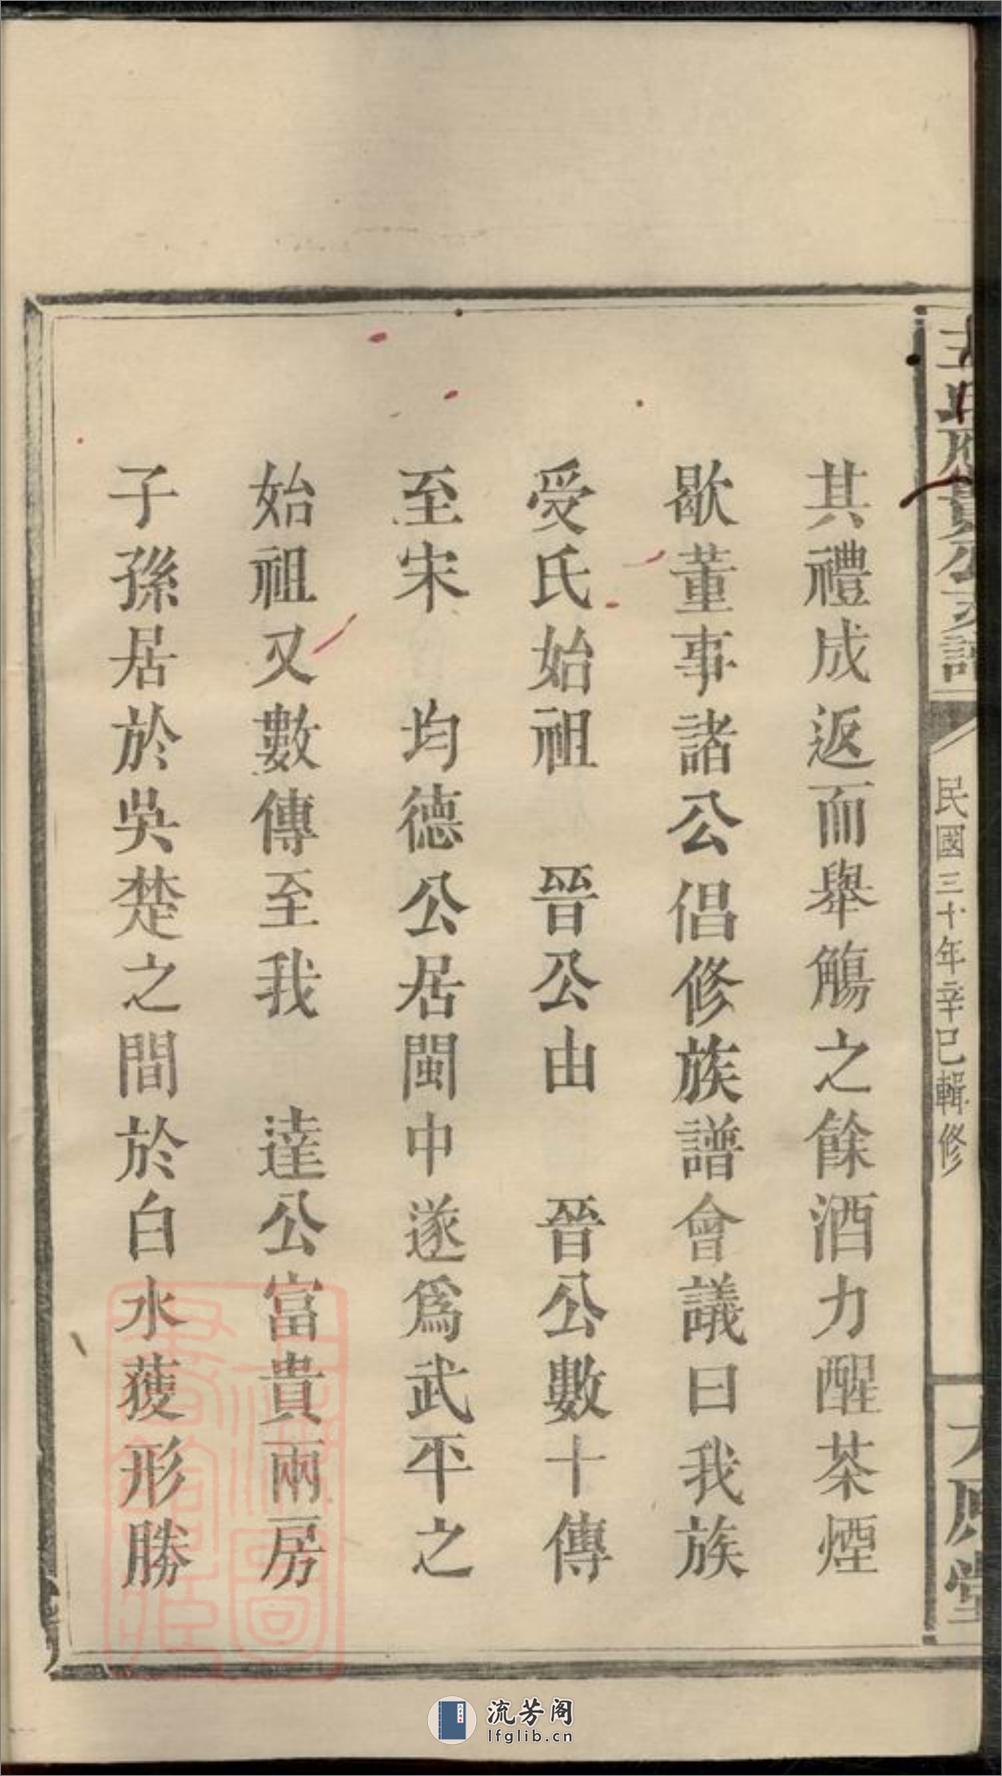 王氏應貴公支譜
民國三十年辛巳輯修
太原堂
其禮成返而舉觴之餘酒力醒茶煙
歇董事諸公倡修族譜會議曰我族
受氏始祖　晉公由　晉公數十傳
至宋　均德公居閩中遂爲武平之
始祖又數傳至我　達公富貴兩房
子孫居於吳楚之間於白水獲形勝
上海圖書館藏
流芳阁
lfglib.cn